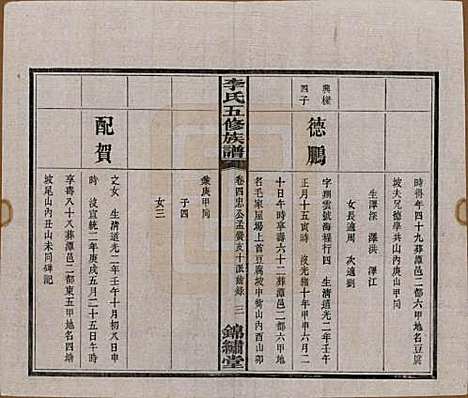 時歿年四十九葬潭邑二都六甲地名豆腐
坡夫兄德學共山內庚山甲向
生澤深 澤洪 澤江
女長適周 次適劉
興樑
四子
德鵬
字翔雲號海程行四 生清道光二年壬午
正月十五寅時 沒光緒十年甲申六月二
十日午時享壽六十三葬潭邑二都六甲地
名毛家屋場上首豆腐坡中嘴山內酉山卯
兼庚甲向
子四
女三
李氏五修族譜
卷四忠公孟 房亥十派齒錄 三
錦繡堂
配賀
文女 生清道光二年壬午十月初八日申
時 沒宣統二年庚戌五月二十五日午時
享壽八十八葬潭邑二都東五甲地名四繞
坡尾山內丑山未向碑記